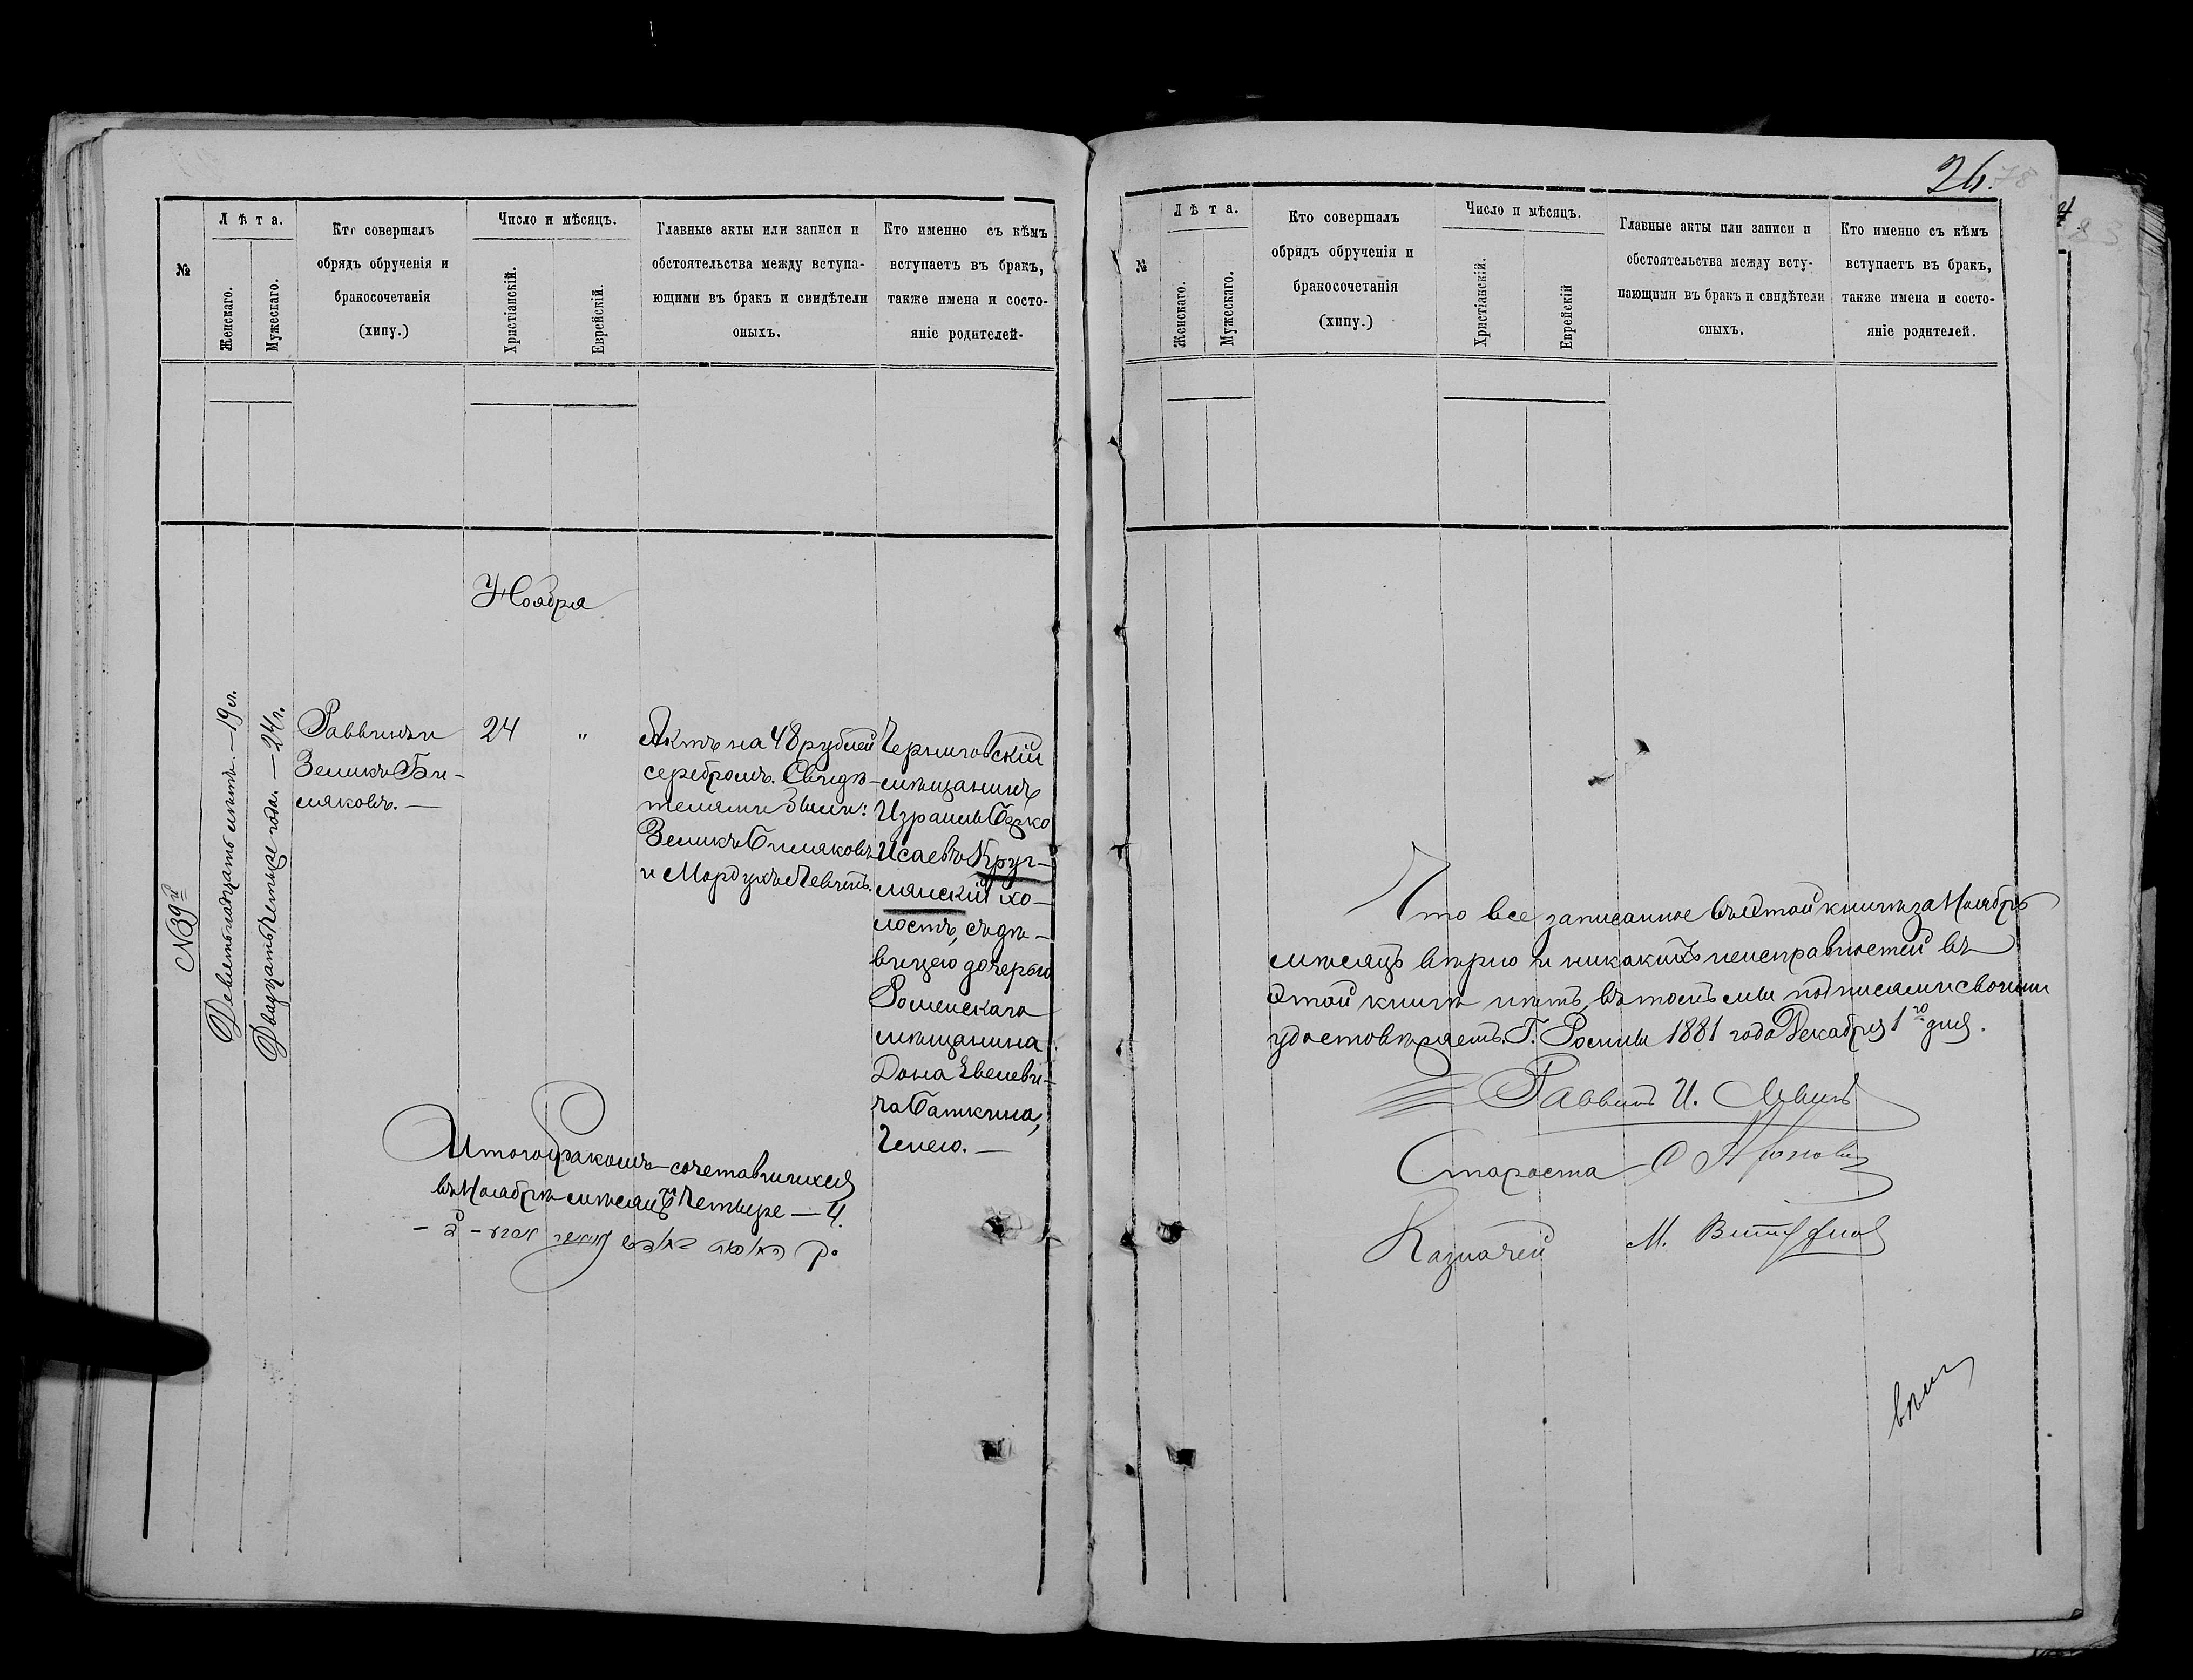 №
Лѣта.
Женскаго.
Мужескаго.
Кто совершалъ
обрядъ обрученія и
бракосочетанія
(хипу.)
Число и мѣсяцъ.
Христіанскій.
Еврейскій.
Главные акты или записи и
обстоятельства между вступа-
ющими въ бракъ и свидѣтели
оныхъ.
Кто именно съ кѣмъ
вступаетъ въ бракъ,
также имена и состо-
яніе родителей-
Ноября
№ 39й
Девятьнадцать лѣтъ. — 19 л.
Двадцать четыре года. — 24 г.
Раввинъ и
Зеликъ Би-
мяковъ. —
24
"
Актъ на 48 рублей
серебромъ. Свидѣ-
телями были:
Зеликъ Бимяковъ
и Мордухъ Левитъ.
Черниговскій
мѣщанинъ
Израиль Берко
Исаевъ Круг-
лянскій хо-
лостъ, съ дѣ-
вицею дочерью
Роменскаго
мѣщанина
Дона Евелеви-
ча Баткина,
Генею. —
Итого бракомъ-сочетавшихся
въ Ноябрѣ мѣсяцѣ четыре — 4.
26.
78
№
Лѣта.
Женскаго.
Мужескаго.
Кто совершалъ
обрядъ обрученія и
бракосочетанія
(хипу.)
Число и мѣсяцъ.
Христіанскій.
Еврейскій
Главные акты или записи и
обстоятельства между всту-
пающими въ бракъ и свидѣтели
оныхъ.
Кто именно съ кѣмъ
вступаетъ въ бракъ,
также имена и состо-
яніе родителей.
Что все записанное въ этой книгѣ за Ноябрь
мѣсяцъ вѣрно и никакихъ неисправностей въ
этой книгѣ нѣтъ, въ томъ мы подписями своими
удостовѣряемъ. Г. Ромны 1881 года Декабря 1го дня.
Раввинъ И. Левинъ
Староста
Казначей М.